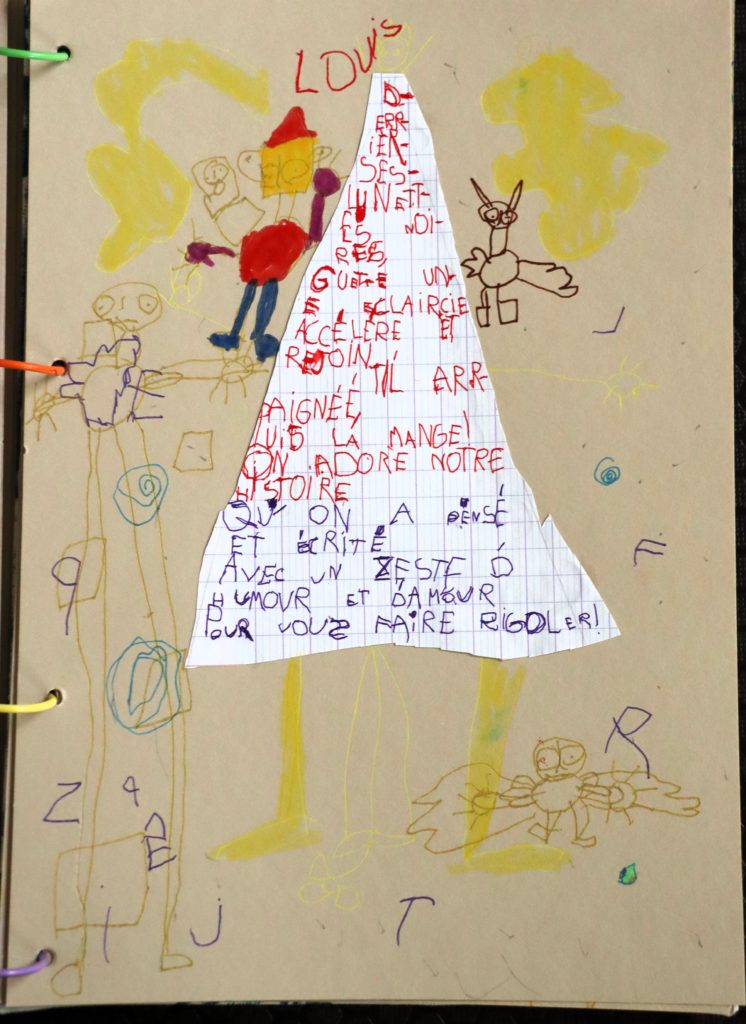 LOUIS
D-
ERR-
IER-
SES-
LUNETT-
ES NOI-
RES,
GUETTE UN-
E ECLAIRCIE
ACCÉLÈRE ET
REJOIN
TIL ARR-
AIGNÉE,
LUIS LA MANGE!
ON ADORE NOTRE
HISTOIRE
QU' ON A PENSÉ
ET ÉCRITÉ
AVEC UN ZESTE D
HUMOUR ET D'AMOUR
POUR VOUS FAIRE RIGOLER!
J
E
F
9
R
Z
4
E
I
J
T